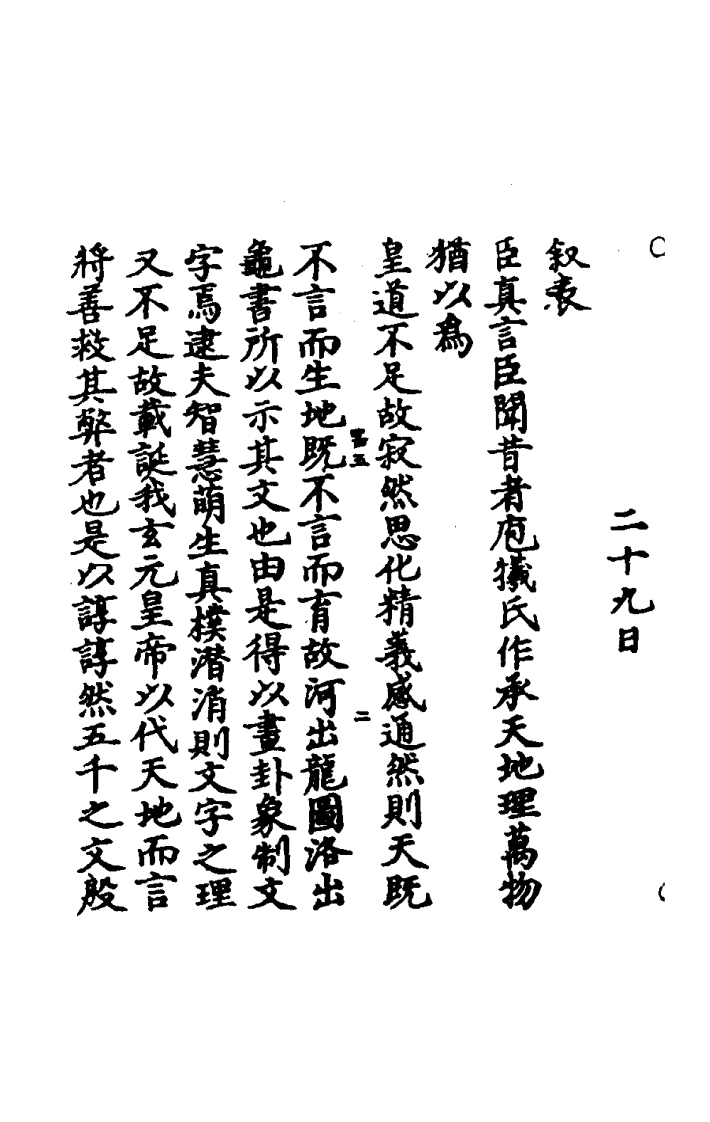 二十九日
叙表
臣真言臣聞昔者庖犧氏作承天地理萬物
猶以為
皇道不足故寂然思化精義感通然則天既
不言而生地既不言而育故河出龍圖洛出
龜書所以示其文也由是得以畫卦象制文
字焉逮夫智慧萌生真樸潛消則文字之理
又不足故載誕我玄元皇帝以代天地而言
將善救其弊者也是以諄諄然五千之文殷